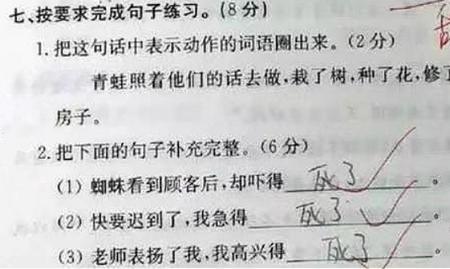 七、按要求完成句子练习。(8分)
1.把这句话中表示动作的词语圈出来。(2分)
青蛙照着他们的话去做,栽了树,种了花,修
房子。
2.把下面的句子补充完整。(6分)
(1) 蜘蛛看到顾客后,却吓得 死了 。
(2) 快要迟到了,我急得 死了 。
(3) 老师表扬了我,我高兴得 死了 。